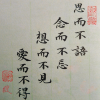 思而不語
念而不忘
想而不見
愛而不得